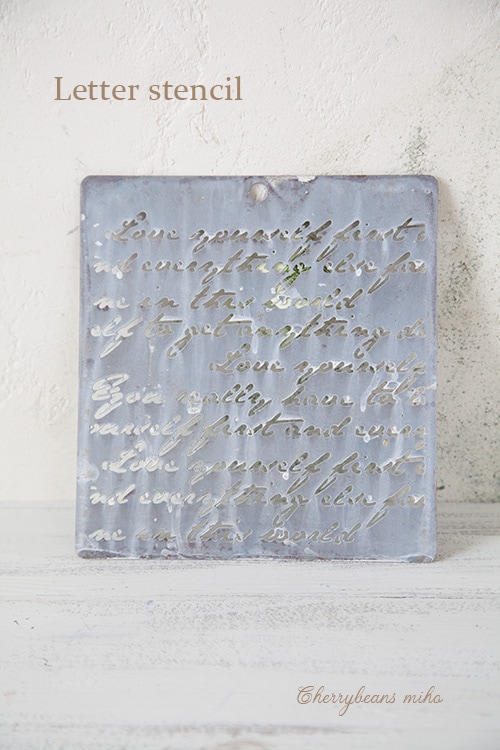 Letter stencil
Love yourself first
nd everything else fa
ne in this world
elf to get anything d
Love yourself
You really have to
ourself first and every
Love yourself first
nd everything else fa
ne in this world
Cherrybeans miho